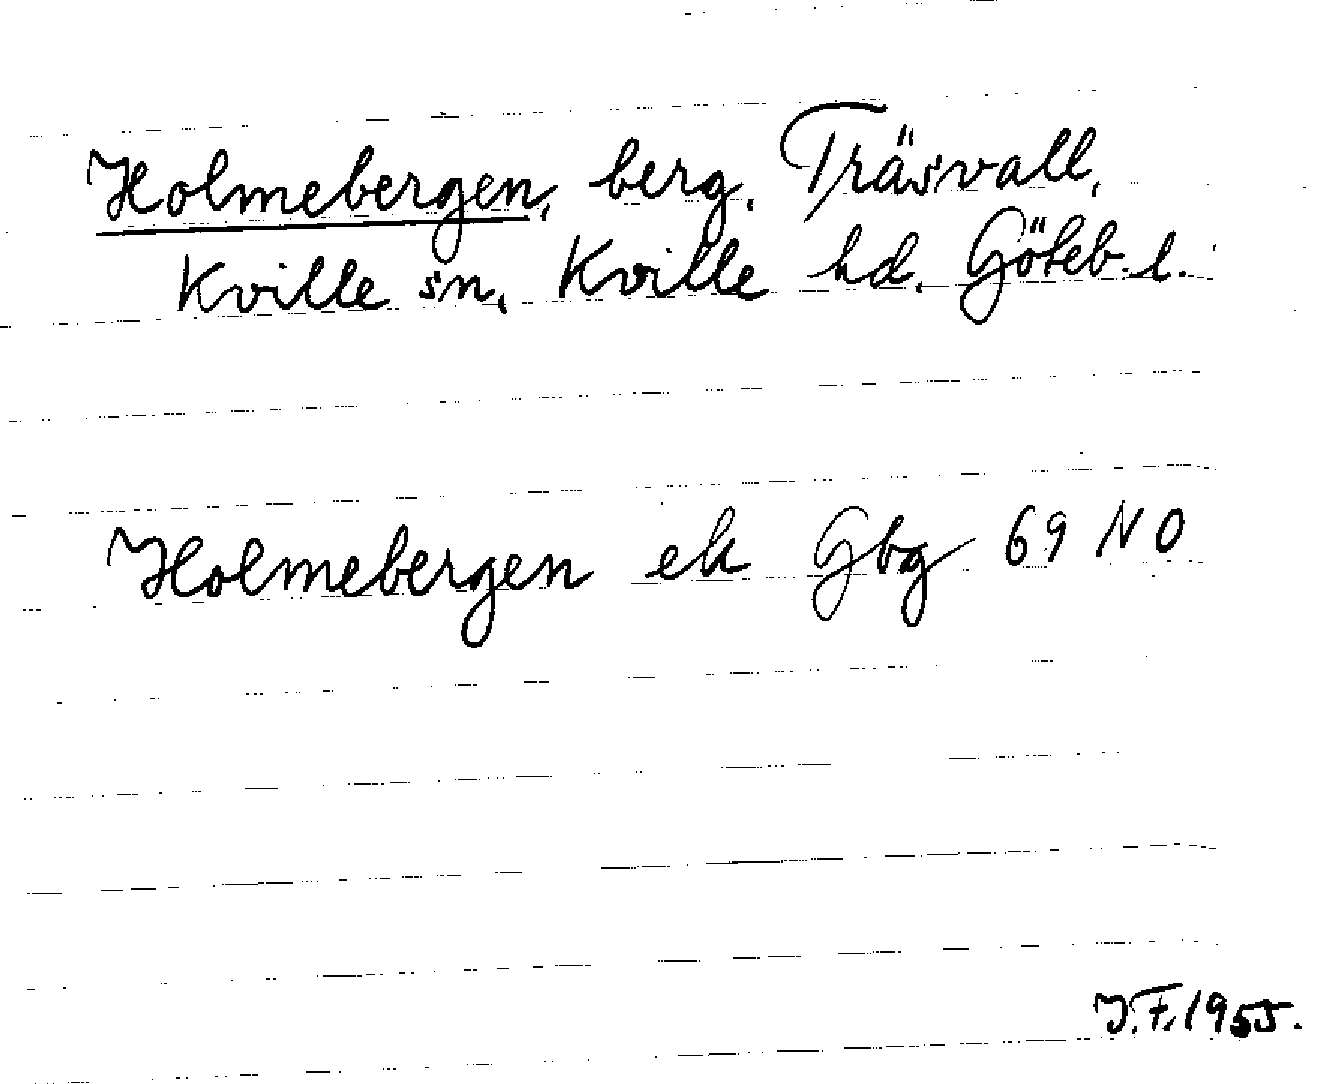 Holmebergen, berg, Träsvall,
Kville sn, Kville hd, Göteb. l.
Holmebergen ek Gbg 69 NO
J.F. 1955.